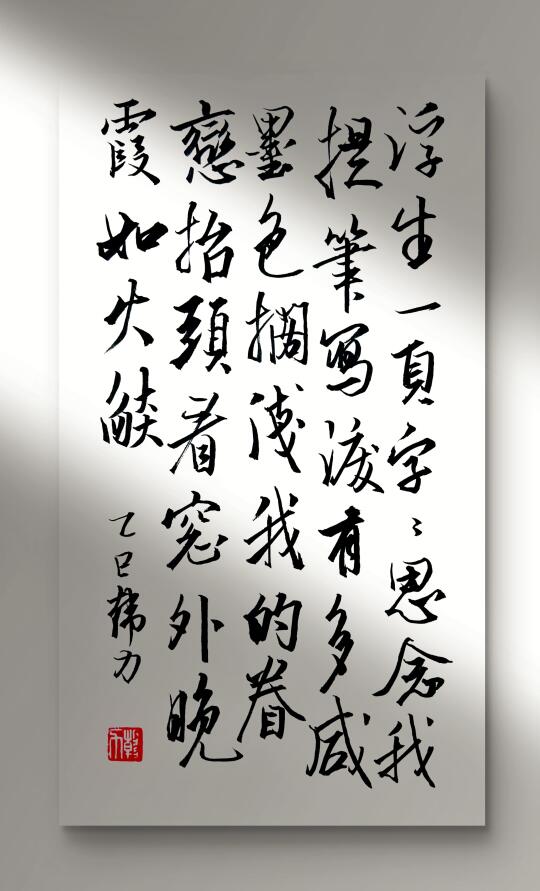 浮生一頁字〻思念我
提筆寫淚有多咸
墨色擱淺我的眷
戀抬頭看窓外晚
霞如火燄
乙巳力